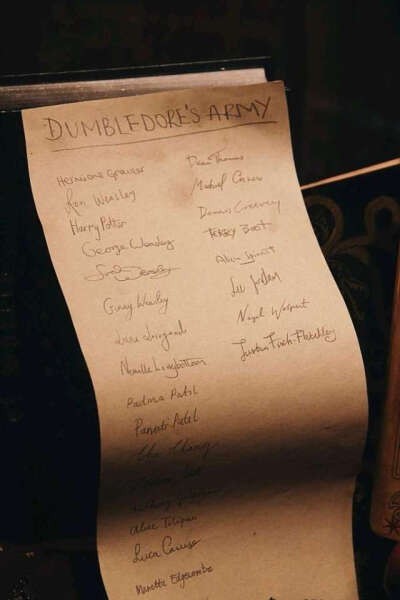 DUMBLEDORE'S ARMY
Hermione Granger
Ron Weasley
Harry Potter
George Weasley
Fred Weasley
Ginny Weasley
Luna Lovegood
Neville Longbottom
Padma Patil
Parvati Patil
Cho Chang
Luca Caruso
Marietta Edgecombe
Dean Thomas
Michael Corner
Dennis Creevey
Terry Boot
Alicia Spinnet
Lee Jordan
Nigel Wolpert
Justin Finch-Fletchley